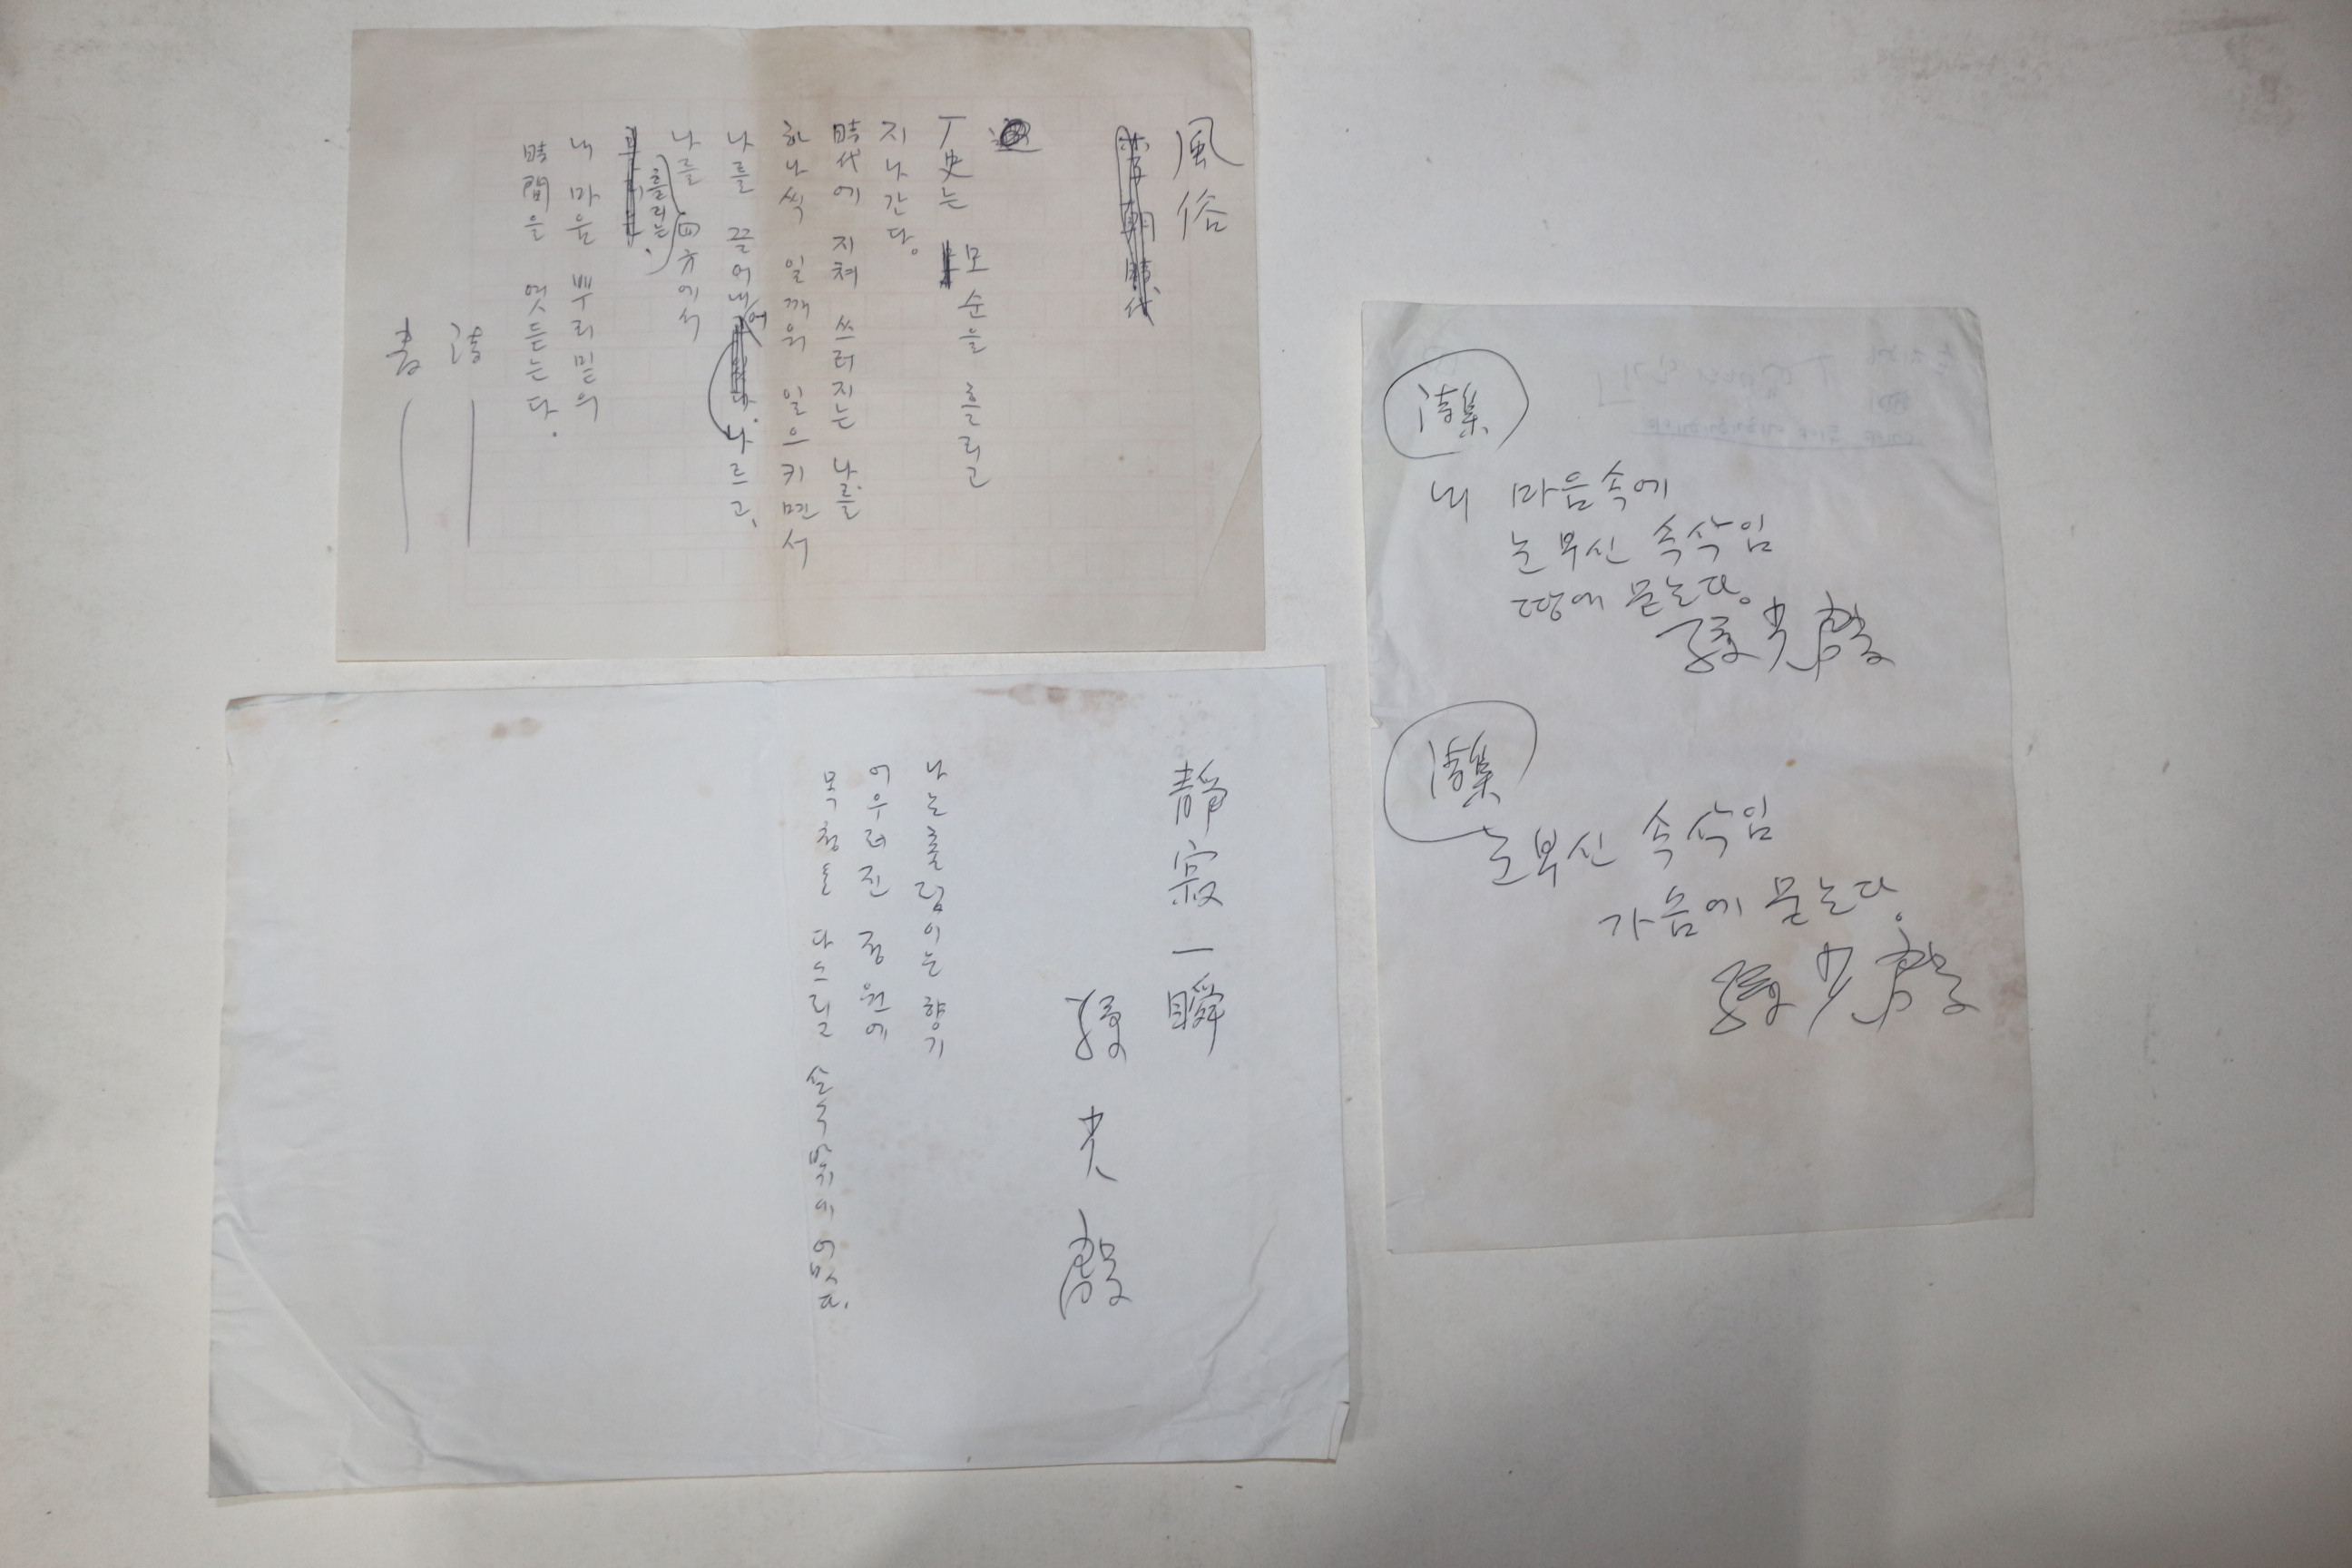 風俗
李朝時代
丁史는 모순을 흘리고
지나간다。
時代에 지쳐 쓰러지는 나를
하나씩 일깨워 일으키면서
나를 끌어내어 나르고、
나를 四方에서
흘리는.
내 마음 뿌리밑의
時間을 엿듣는다.
靜寂一瞬
孫光殷
나는 흔들림이는 향기
어우러진 정원에
목청을 다스릴
詩集
내 마음속에
눈부신 속삭임
땅에 묻는다。
孫光殷
詩集
눈부신 속삭임
가슴에 묻는다.
孫光殷